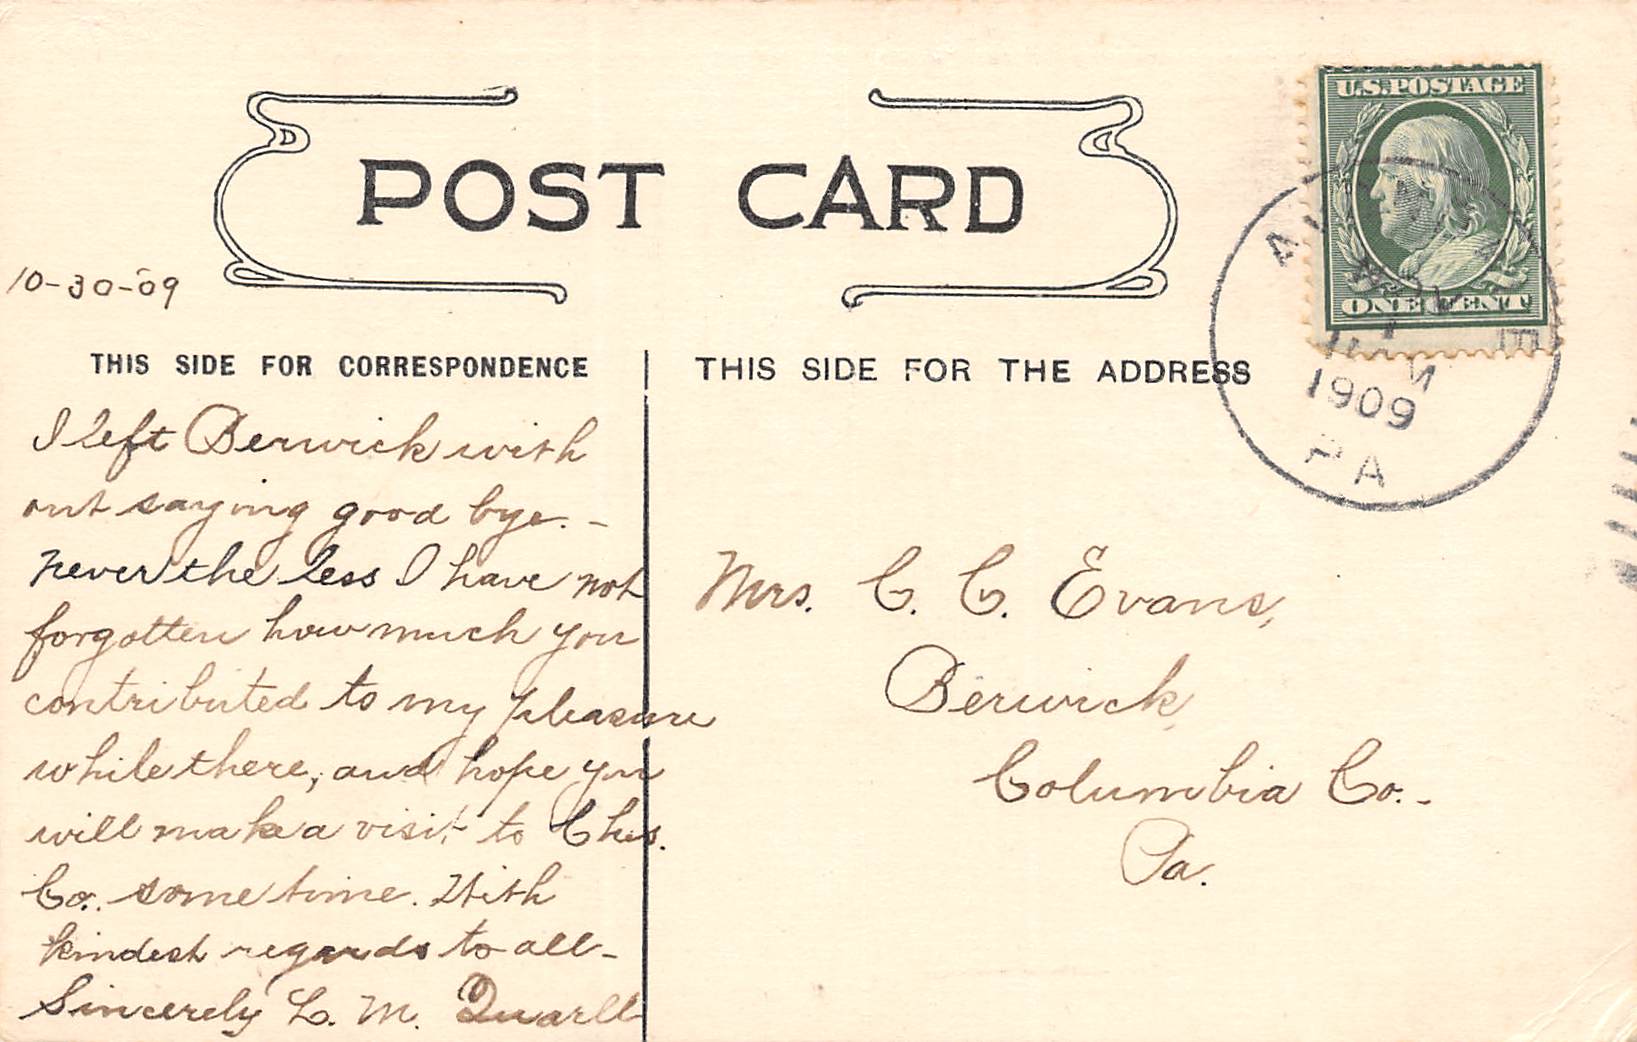 POST CARD
U.S. POSTAGE
ONE CENT
NOV
1
M
1909
PA
10-30-09
THIS SIDE FOR CORRESPONDENCE
THIS SIDE FOR THE ADDRESS
I left Berwick with
out saying good bye. -
never the less I have not
forgotten how much you
contributed to my pleasure
while there, and hope you
will make a visit to Ches.
Co. some time. With
kindest regards to all -
Sincerely L. M. Quarll
Mrs. C. C. Evans,
Berwick,
Columbia Co. -
Pa.